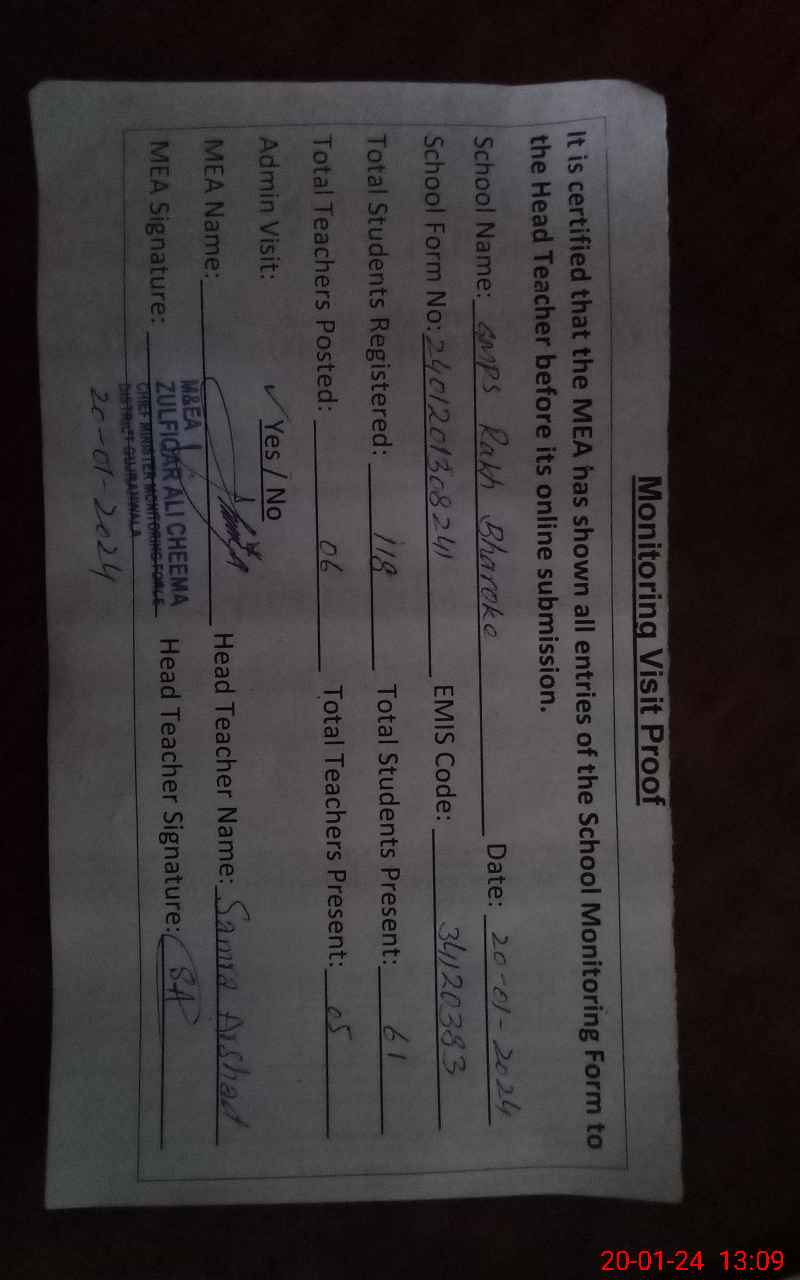 Monitoring Visit Proof
It is certified that the MEA has shown all entries of the School Monitoring Form to
the Head Teacher before its online submission.
School Name: GMPS Rakh Bharoke Date: 20-01-2024
School Form No: 2401201308241 EMIS Code: 34120383
Total Students Registered: 118 Total Students Present: 61
Total Teachers Posted: 06 Total Teachers Present: 05
Admin Visit: ✓ Yes / No
MEA Name: Head Teacher Name: Samra Arshad
MEA Signature: Head Teacher Signature: SA
M&EA
ZULFIQAR ALI CHEEMA
CHIEF MINISTER MONITORING FORCE
DISTRICT GUJRANWALA
20-01-2024
20-01-24 13:09